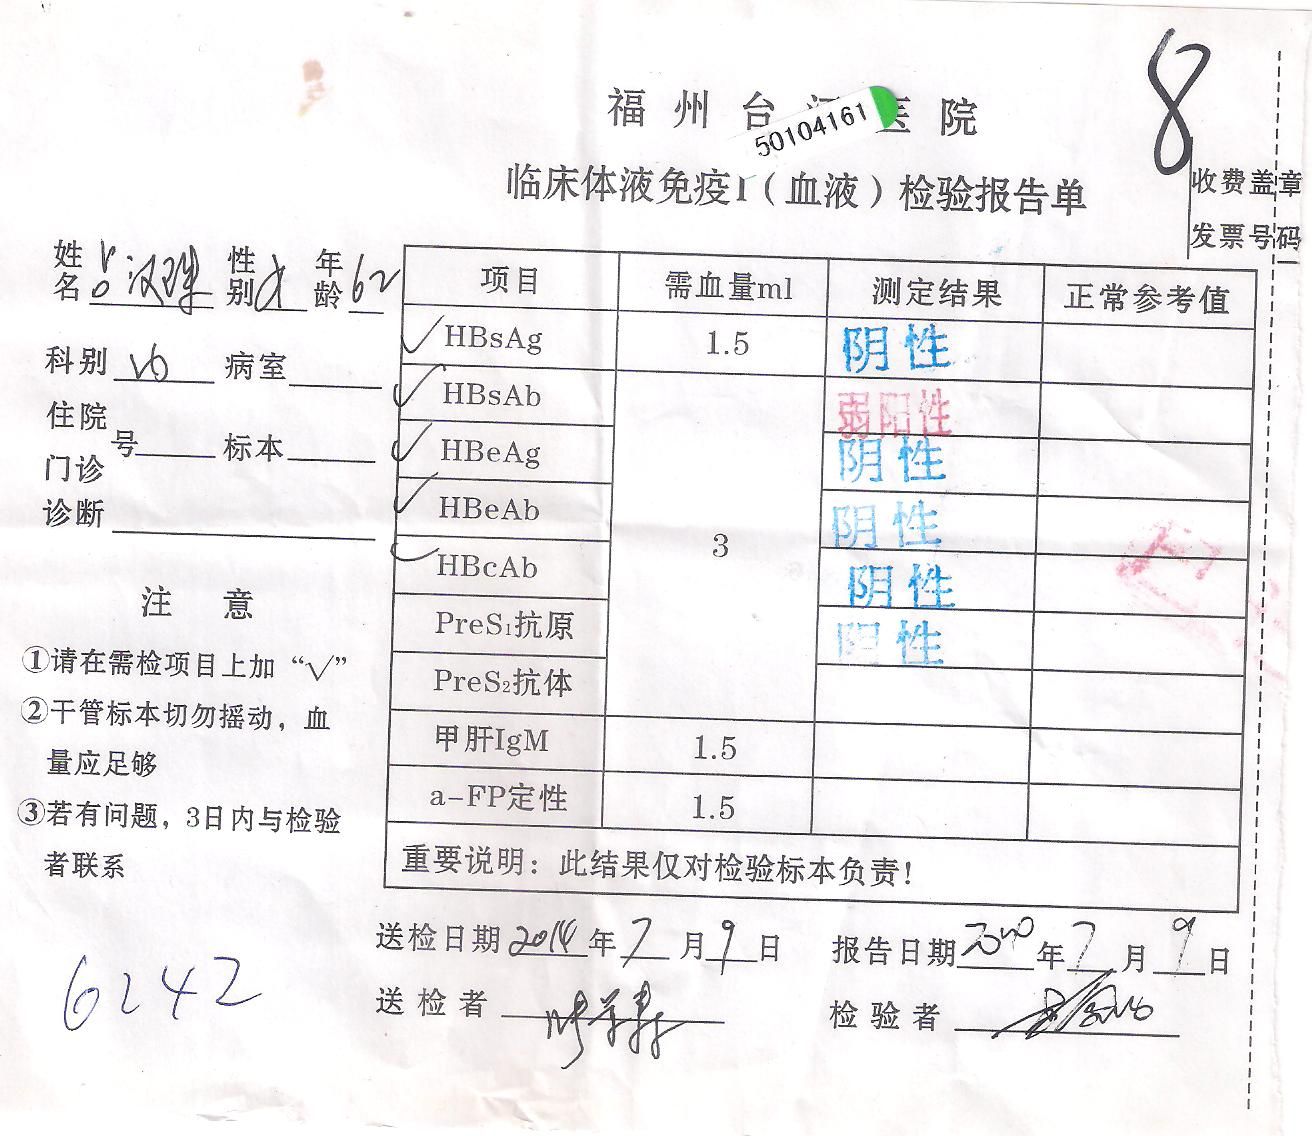 8
福州台 医院
50104161
临床体液免疫I（血液）检验报告单
收费盖章
发票号码
姓名 汉珠 性别 女 年龄 62
科别 内 病室
住院
门诊 号 标本
诊断
注 意
①请在需检项目上加“√”
②干管标本切勿摇动，血
量应足够
③若有问题，3日内与检验
者联系
6242
项目 需血量ml 测定结果 正常参考值
√ HBsAg 1.5 阴性
√ HBsAb 弱阳性
√ HBeAg 阴性
√ HBeAb 阴性
3
√ HBcAb 阴性
PreS₁抗原 阴性
PreS₂抗体
甲肝IgM 1.5
a-FP定性 1.5
重要说明：此结果仅对检验标本负责！
送检日期 2014 年 7 月 9 日 报告日期 年 7 月 9 日
送检者 检验者